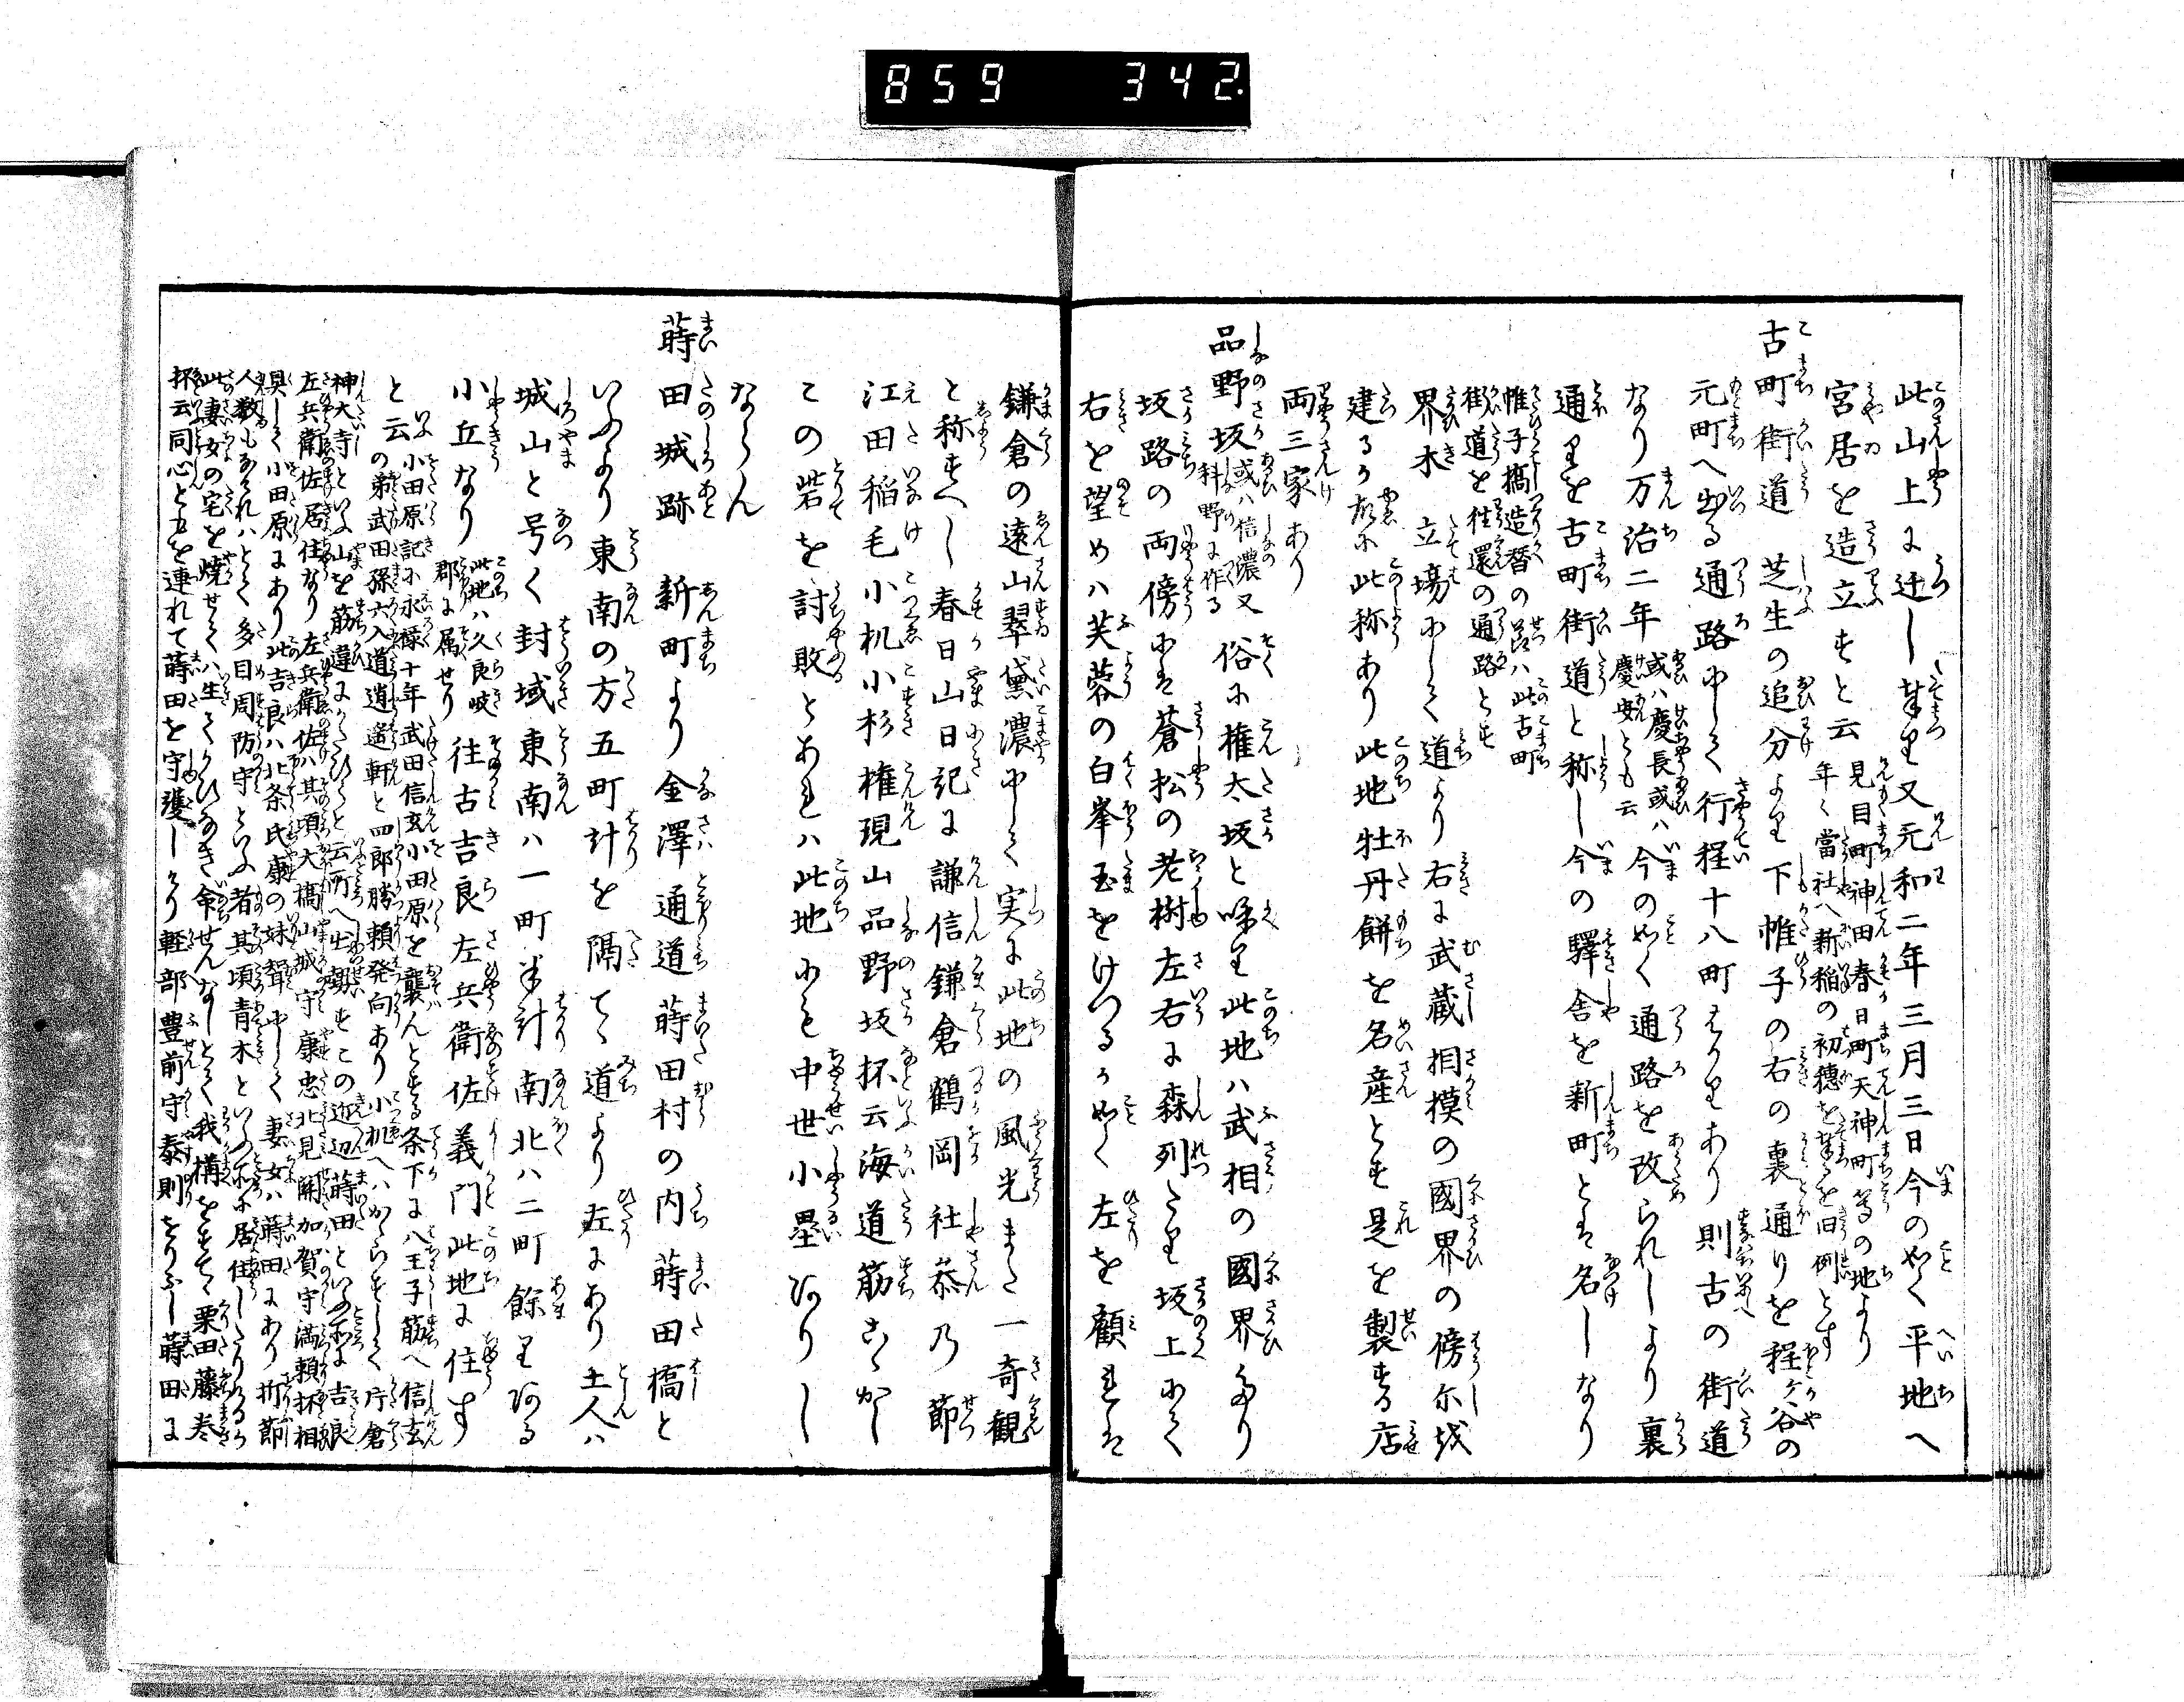 859 342.
此山上に迁し奉り又元和二年三月三日今の如く平地へ
宮居を造立すと云
見目町神田春日町天神町等の地より
年々當社へ新稲の初穂を奉るを旧例とす
古町街道 芝生の追分より下帷子の右の裏通りを程ヶ谷の
元町へ出る通路にして行程十八町はかりあり則古の街道
なり万治二年
或ハ慶長或ハ
慶安とも云
今の如く通路を改られしより裏
通りを古町街道と称し今の驛舎を新町とは名しなり
帷子橋造替の節ハ此古町
街道を往還の通路とす
界木 立場にして道より右に武蔵相摸の國界の傍示杭
建るか故に此称あり此地牡丹餅を名産とす是を製する店
両三家あり
品野坂
或ハ信濃又
科野に作る
俗に権太坂と唤り此地ハ武相の國界なり
坂路の両傍には蒼松の老樹左右に森列たり坂上にて
右を望めハ芙蓉の白峯玉をけつるか如く左を顧れは
鎌倉の遠山翠黛濃にして実に此地の風光また一奇観
と称すへし春日山日記に謙信鎌倉鶴岡社参乃節
江田稲毛小机小杉権現山品野坂抔云海道筋こゝかし
この砦を討敗とあれハ此地にも中世小塁ありし
ならん
蒔田城跡 新町より金澤通道蒔田村の内蒔田橋と
いふより東南の方五町計を隔てゝ道より左にあり土人ハ
城山と号く封域東南ハ一町半計南北ハ二町餘りある
小丘なり
此地ハ久良岐
郡に属せり
往古吉良左兵衛佐義門此地に住す
と云
小田原記に永禄十年武田信玄小田原を襲んとする条下に八王子筋へ信玄
の弟武田孫六入道逍遙軒と四郎勝頼発向あり小机へハかゝらすして片倉
神大寺といふ山を筋違にかたひらと云所へ出勢すこの近辺蒔田といふ所に吉良
左兵衛佐居住なり左兵衛佐ハ其頃大橋山城守康忠北見関加賀守満頼抔相
具して小田原にあり此吉良ハ北条氏康の妹聟にして妻女ハ蒔田にあり折節
人数もあらされハとて多目周防守といふ者其頃青木といふ所に居住したりけるか
此妻女の宅を焼せてハ生てかひなき命せんなしとて我構をすてゝ栗田藤巻
抔云同心ともを連れて蒔田を守護しけり軽部豊前守泰則をりふし蒔田に